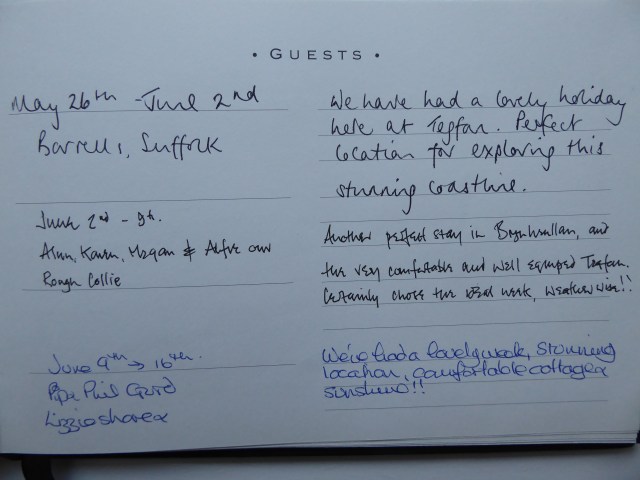 • GUESTS •
May 26th - June 2nd
Barrells, Suffolk
We have had a lovely holiday
here at Tegfan. Perfect
location for exploring this
stunning coastline.
June 2nd - 9th.
Alun, Karen, Megan & Alfie our
Rough Collie
Another perfect stay in and
the very comfortable and well equiped Tegfan.
Certainly chose the ideal week, weather wise!!
June 9th → 16th.
Phil
Lizzie
We've had a lovely week, stunning
location, comfortable cottage x
sunshine!!